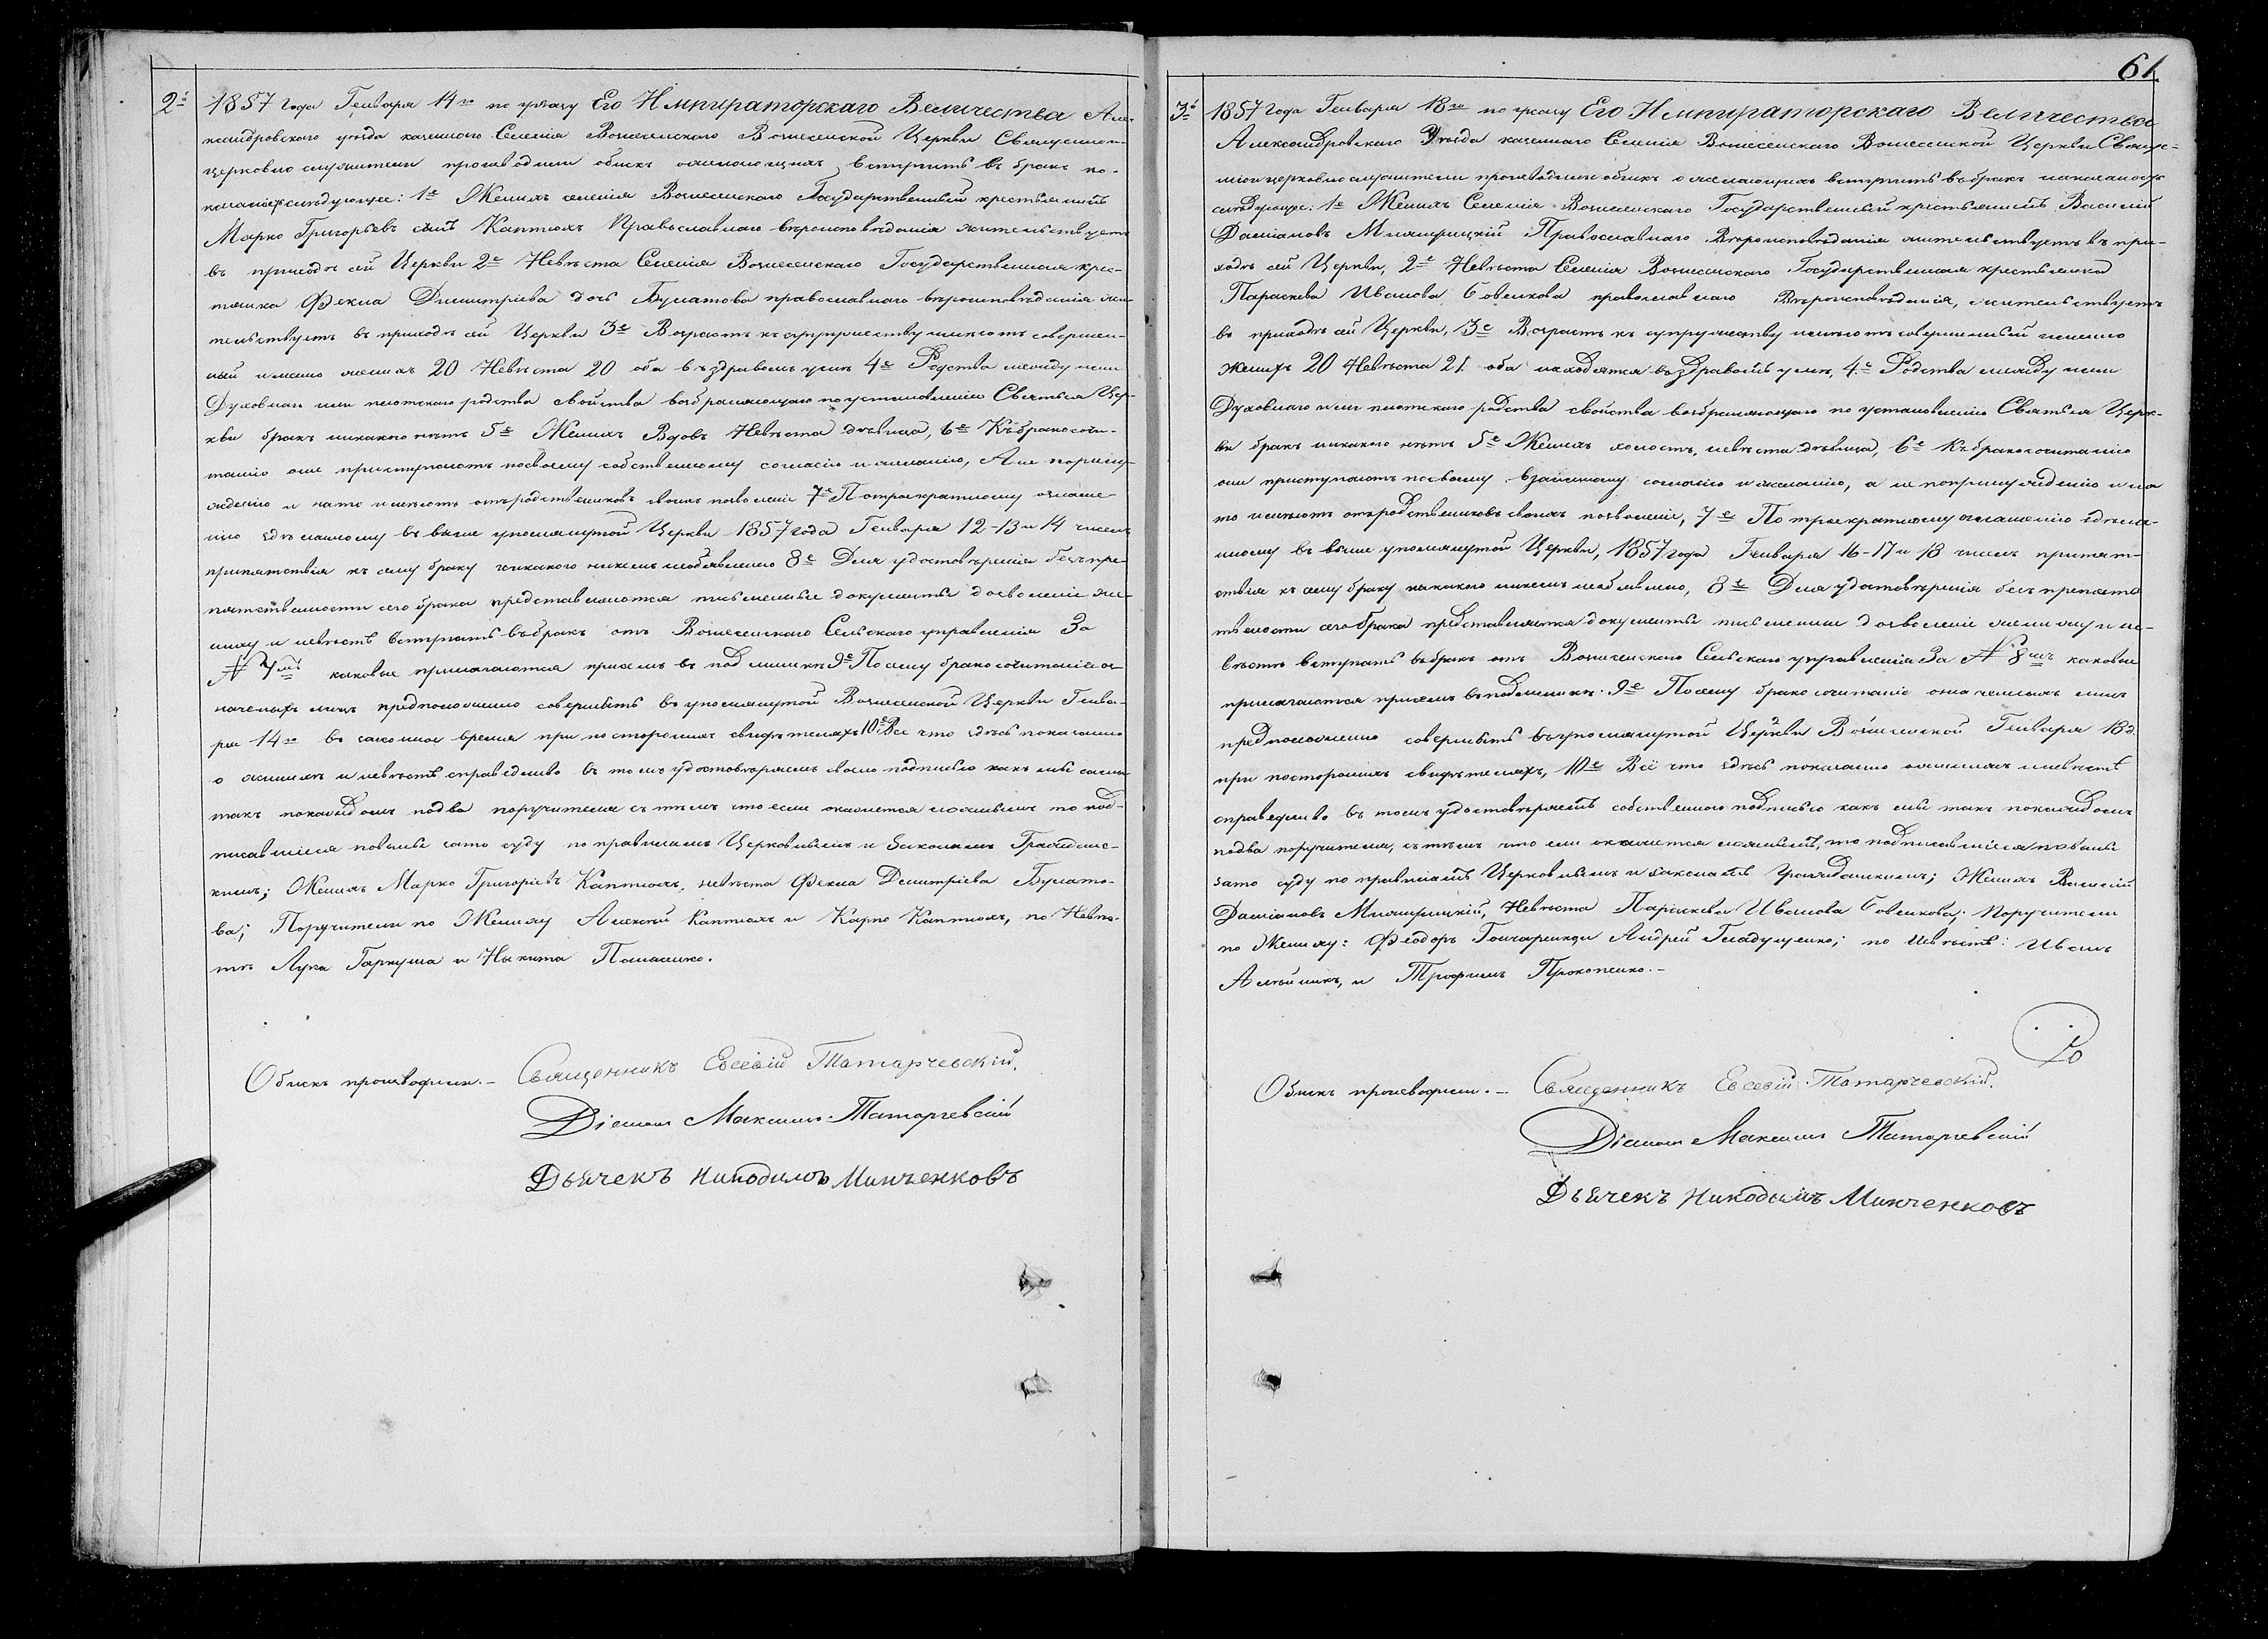 2й
1857 года Генваря 14го по указу Его Императорскаго Величества Але-
ксандровскаго уезда казеннаго Селенія Вознесенскаго Вознесенской Церкви Священно-
церковно служители производили обыскъ о желающихъ вступить въ бракъ по-
казано следующее: 1е Женихъ селенія Вознесенскаго Государственный крестьянинъ
Марко Григорьевъ сынъ Каптюхъ Православнаго вѣроисповѣданія жительствуетъ
въ приходѣ сей Церкви 2е Невѣста Селенія Вознесенскаго Государственная крес-
тянка Фекла Димитріева дочь Булатова православнаго вѣроисповѣданія жи-
тельствуетъ въ приходѣ сей Церкви 3е Возрастъ къ супружеству имеютъ совершен-
ный именно женихъ 20 Невѣста 20 оба въ здравомъ умѣ 4е Родства между ими
Духовнаго или плотскаго родства свойства возбраняющаго по установленію Святыя Цер-
кви бракъ никакого нѣтъ 5е Женихъ Вдовъ Невѣста дѣвица, 6е Къ бракосоче-
танію они приступаютъ по своему собственному согласію и желанію, А не по прину-
жденію и на то имѣютъ отъ родственниковъ своихъ позволеніе 7е По троекратному оглаше-
нію сдѣланному въ выше упомянутой Церкви 1857 года Генваря 12-13 и 14 чиселъ
припятствія къ сему браку никакого никемъ необявлено 8е Для удостовѣренія безпре-
пятственности сего брака представляются письменные документы дозволеніе же-
ниху и невѣстѣ вступить въ бракъ отъ Вознесенскаго Сельскаго управленія За
№ 7мъ каковые прилагаются при семъ въ подлинникѣ 9е По сему бракосочитаніе оз-
наченыхъ лицъ предположено совершить въ упомянутой Вознесенской Церкви Генва-
ря 14го въ законное время при постороннихъ свидѣтеляхъ 10е Все что здѣсь показано
о женихѣ и невѣстѣ справедливо въ томъ удостовѣряемъ своею подписью какъ мы сами
такъ по каждомъ по два поручителя съ тѣмъ что если окажется ложнымъ то под-
писавшіеся повины зато суду по правиламъ Церковнымъ и Законамъ Граждан-
скимъ; Женихъ Марко Григорьевъ Каптюхъ, невѣста Фекла Демитріева Булато-
ва; Поручители по Жениху Алексѣй Каптюхъ и Карпо Каптюхъ, по Невѣ-
стѣ Лука Гаркуша и Никита Панасенко.
Обыскъ производили.- Священникъ Евсевій Татарчевскій.
Діаконъ Максимъ Татарчевскій
Дьячекъ Никодимъ Минченковъ
61
3й
1857 года Генваря 18го по указу Его Императорскаго Величества
Александровскаго Уезда казеннаго Селенія Вознесенскаго Вознесенской Церкви Священ-
нои церковно служители производили обыскъ о желающихъ вступить въ бракъ и показаность
слѣдующее: 1е Женихъ Селенія Вознесенскаго Государственный крестьянинъ Василій
Даміановъ Православнаго Вѣроисповѣданія жительствуетъ въ при-
ходѣ сей Церкви, 2е Невѣста Селенія Вознесенскаго Государственная крестьянка
Параскева Иванова Бовенкова православнаго Вѣроисповѣданія, жительствуетъ
въ приходѣ сей Церкви, 3е Возрастъ къ супружеству имѣютъ совершенный именно
женихъ 20 Невѣста 21 оба находятся въ здравомъ умѣ, 4е Родства между ими
Духовнаго или плотскаго родства свойства возбраняющаго по установленію Святыя Церк-
ви бракъ никакого нѣтъ 5е Женихъ холостъ, невѣста дѣвица, 6е Къ бракосочитанію
они приступаютъ по своему взаимному согласію и желанію, а не по принужденію и на
то имѣютъ отъ родственниковъ своихъ позволеніе, 7е По троекратному оглашенію сдѣла-
нному въ выше упомянутой Церкви, 1857 года Генваря 16-17 и 18 чиселъ припят-
ствія къ сему браку никакого никемъ необявлено, 8е Для удостовѣренія безъ препятс-
твенности сего брака представляются документы письменные дозволеніе жениху и не-
вѣстѣ вступить въ бракъ отъ Вознесенскаго Сельскаго управленія За № 8мъ каковые
прилагаются при семъ въ подлинникѣ. 9е По сему бракосочитаніе означеныхъ лицъ
предположено совершить въ упомянутой Церкви Вознесенской Генваря 18 д.
при постороннихъ свидѣтеляхъ, 10е Всё что здѣсь показано о женихѣ и невѣстѣ
справедливо въ томъ удостовѣряемъ собственною подписью какъ мы такъ по каждомъ
по два поручителя, съ тѣмъ что ели окажется ложнымъ, то подписавшіеся повины
зато суду по правиламъ Церковнымъ и законамъ Гражданскимъ; Женихъ Василій
Даміановъ Невѣста Параскева Иванова Бовенкова; Поручители
по Жениху: Феодоръ Андрей Гладущенко; по Невѣстѣ: Иванъ
и Трофимъ Прокопенко.-
Обыскъ производили.- Священникъ Евсевій Татарчевскій.
Діаконъ Максимъ Татарчевскій
Дьячекъ Никодимъ Минченковъ